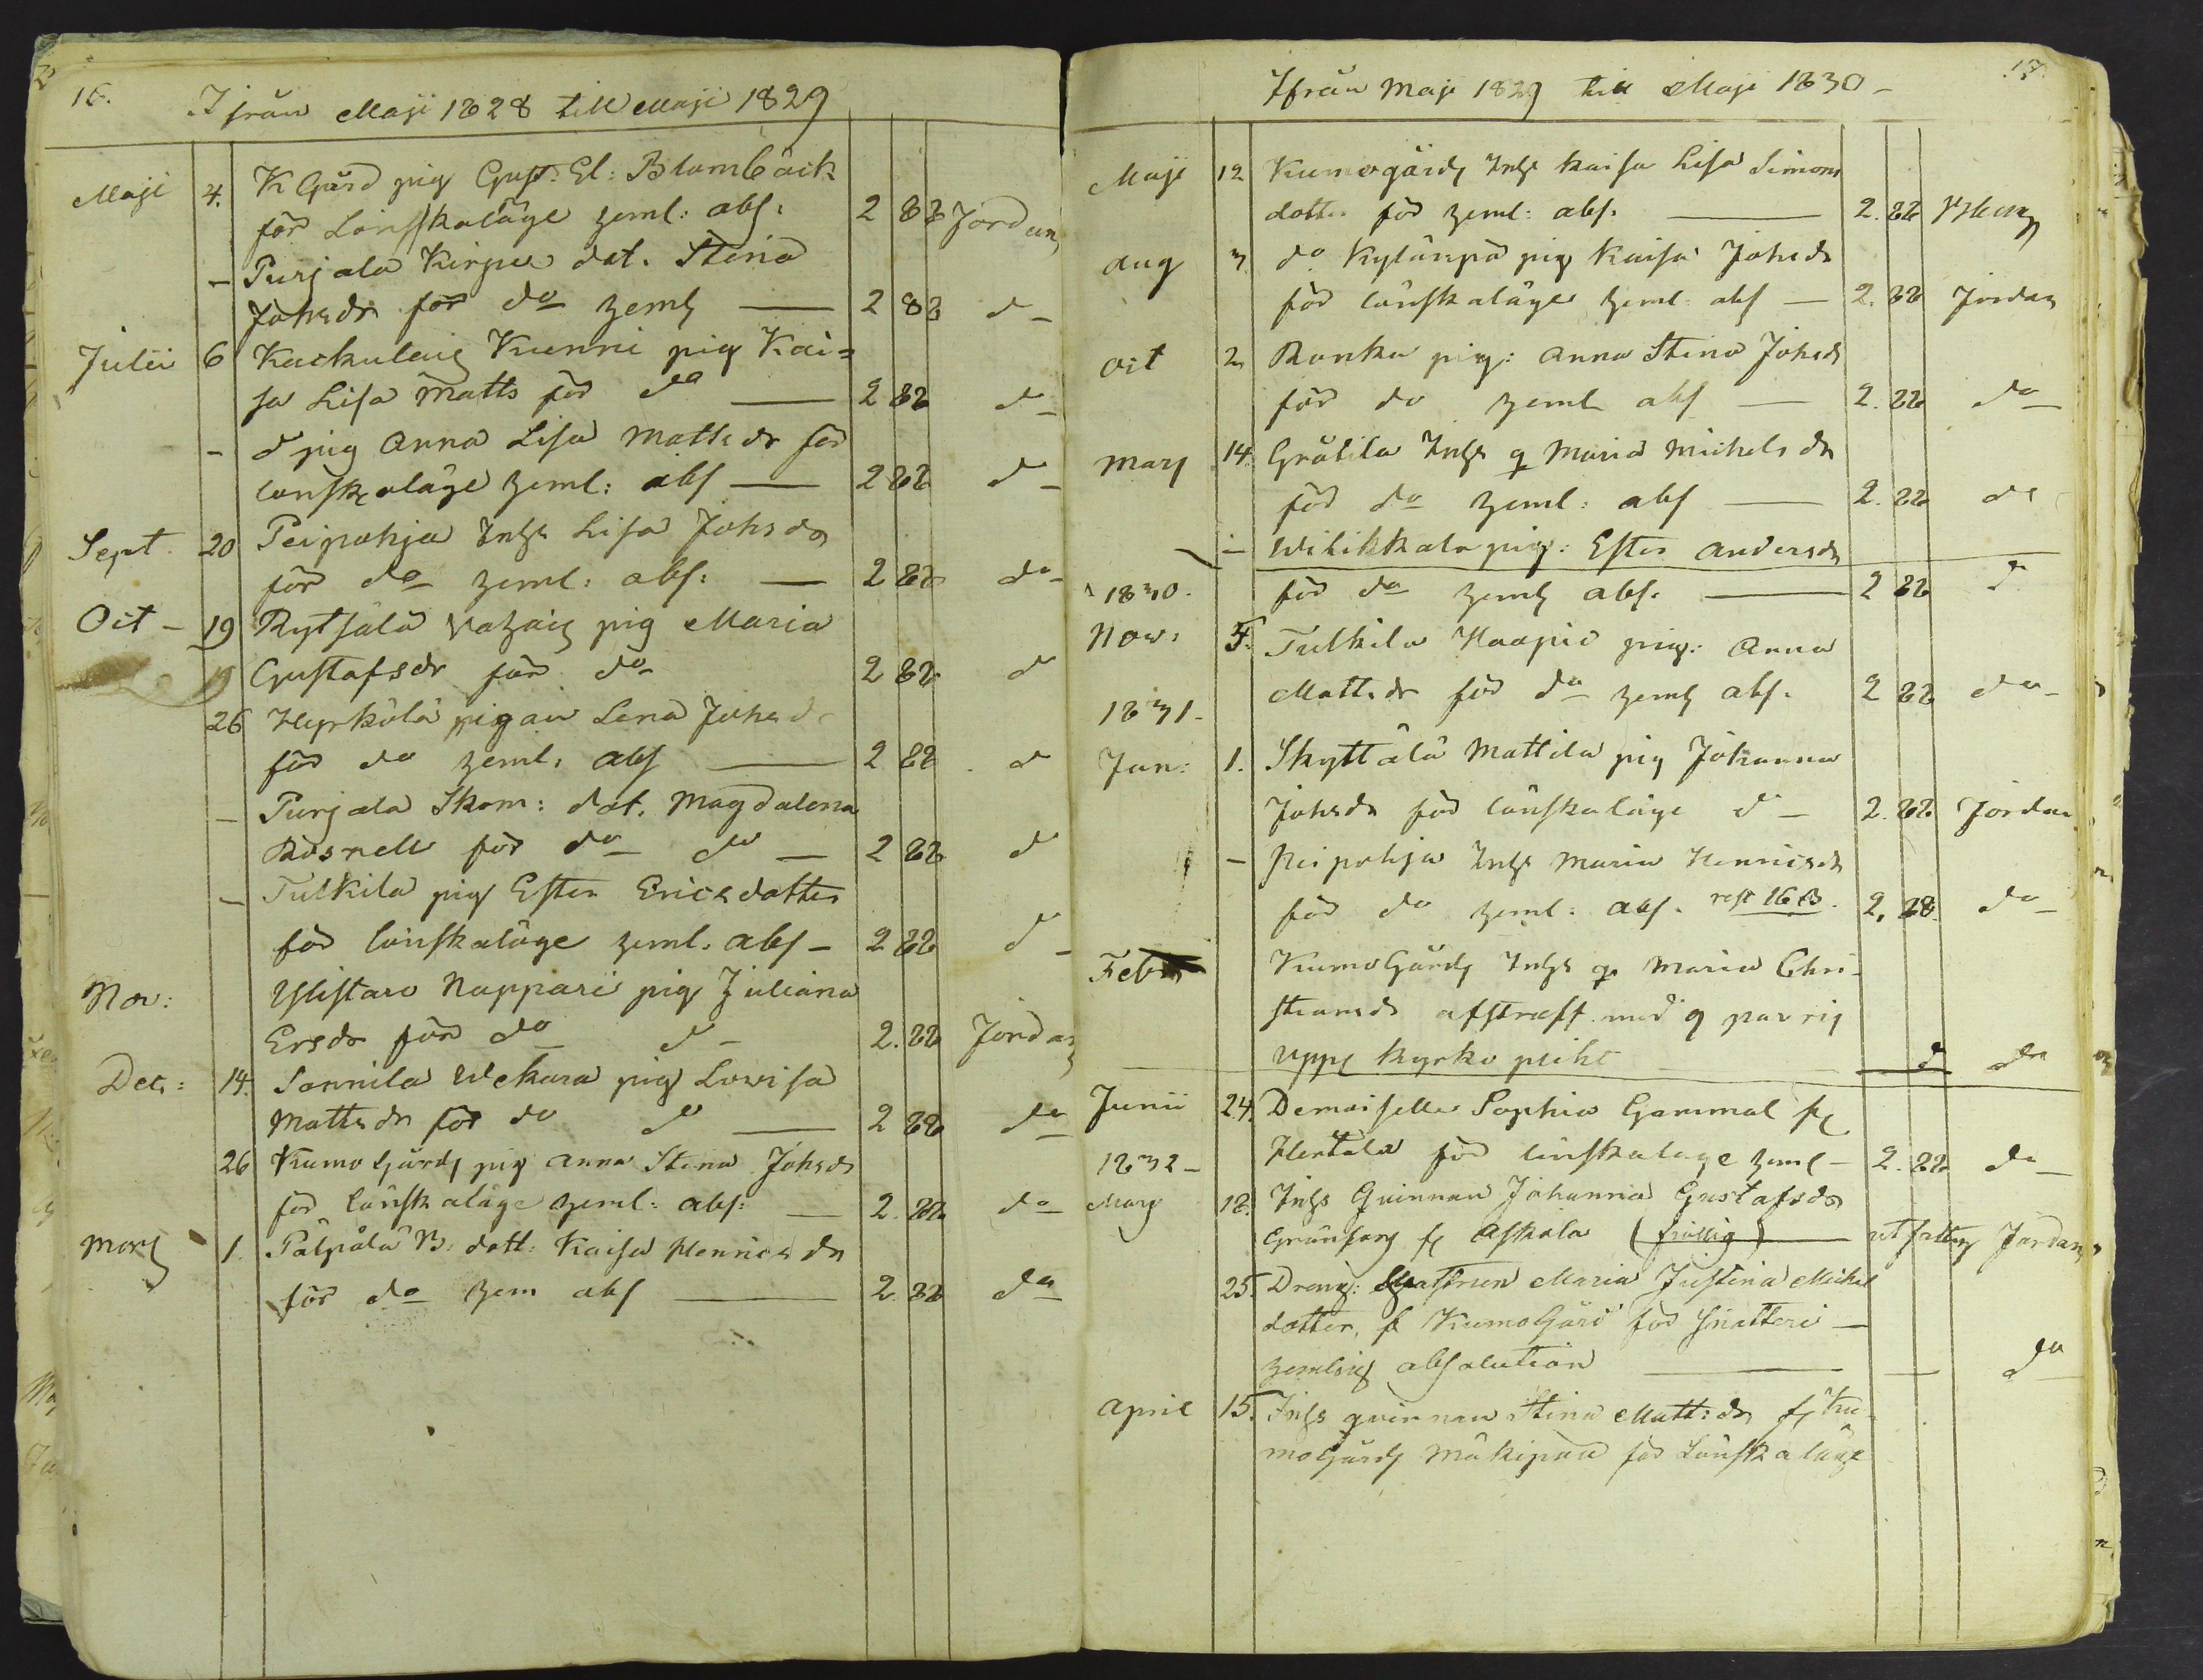 16.
Ifrån Maji 1828 till Maji 1829
Maji 4. K Gård pig Gust. El: Blombäck
för Lönskaläge heml: abs: 2 82 Jordan
– Purjala Kirpu dot. Stina
Johsdr för do heml — 2 82 d–
Julii 6 Kackulais Kunni pig Kai=
sa Lisa Matts för do — 2 82 d–
– d pig Anna Lisa Mattsdr för
lönskaläge heml: abs — 2 82 d–
Sept. 20 Peipohja Inhs Lisa Johsdr
för do heml: abs: — 2 82 do–
Oct – 19 Rytsälä pig Maria
19 Gustafsdr för do 2 82 d
26 Hyrkölä pigan Lena Johsdr
för do heml: abs — 2 82 d
– Purjala Skom: dot. Magdalena
Rosnell för do do — 2 82 d
– Tulkila pig Ester Ericsdotter
för lönskaläge heml. abs – 2 82 d–
Nov: Ylistaro Nappari pig Juliana
Ersdr för do d– 2. 82 Jordan
Dec: 14. Sonnila Uckara pig Lovisa
Mattsdr för do do — 2 82 do
26 Kumo Gårds pig Anna Stina Johsdr
för lönskaläge heml: abs: — 2. 82 do
Mars 1. Pälpälä B: dott: Kaisa Henricsdr
för do hem abs — 2. 82 do
17.
Ifrån Maji 1829 till Maji 1830 –
Maji 12 Kumogårds Inhs Kaisa Lisa Simons
dotter för heml: abs. — 2. 82
Aug 3 do Kylänpä pig Kaisa Johsdr
för lönskaläge heml. abs — 2. 82 Jordan
Oct 2 Ronka pig: Anna Stina Johsdr
för do heml abs — 2. 82 do
Mars 14. Grätila Inhs q Maria Michelsdr
för do heml: abs — 2. 82 do
– Wilikkala pig: Ester Andersdr
1830. för do heml abs. — 2 82 d
Nov: 7. Tulkila Haapio pig: Anna
Mattsdr för do heml abs. 2 82 do–
1831.
Jan: 1. Skyttälä Mattila pig Johanna
Johsdr för lönskaläge d– 2. 82 Jordan
– Peipohja Inhs Maria Henricsdr
för do heml: abs. rest 16 B. 2. 28. do
Febr KumoGårds Inhs q Maria Chri-
stiansdr afstraff. med 9 par ris
uppf kyrko plikt d do
Junii 24. Demoiselle Sophia Gammal fr
Hertala för lönskalage heml – 2. 82 do
1832 –
Mars 18. Inhs Quinnan Johanna Gustafsdr
Grönfors fr Askola (frillig) — Jordan
25. Dreng: Maria Justina Michel
dotter, fr KumoGård för snatteri –
hemlig absolution — – do
April 15. Inhs quinnan Stina Matt:dr fr Ku
moGårds Mäkipää för Lönskaläge